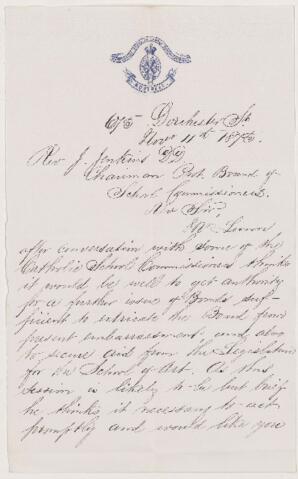 675 Dorchester St
Novr 11th 1875.
Rev J. Jenkins DD
Chairman Prot. Board of
School Commissioners.
Rev Sir,
Mr Lunn
after conversation with some of the
Catholic School Commissioners thinks
it would be well to get authority
for a further issue of Bonds suf-
ficient to extricate the Board from
present embarrassment and also
to secure aid from the Legislature
for the School of Art. As this
session is likely to be but brief
he thinks it necessary to act
promptly and would like you